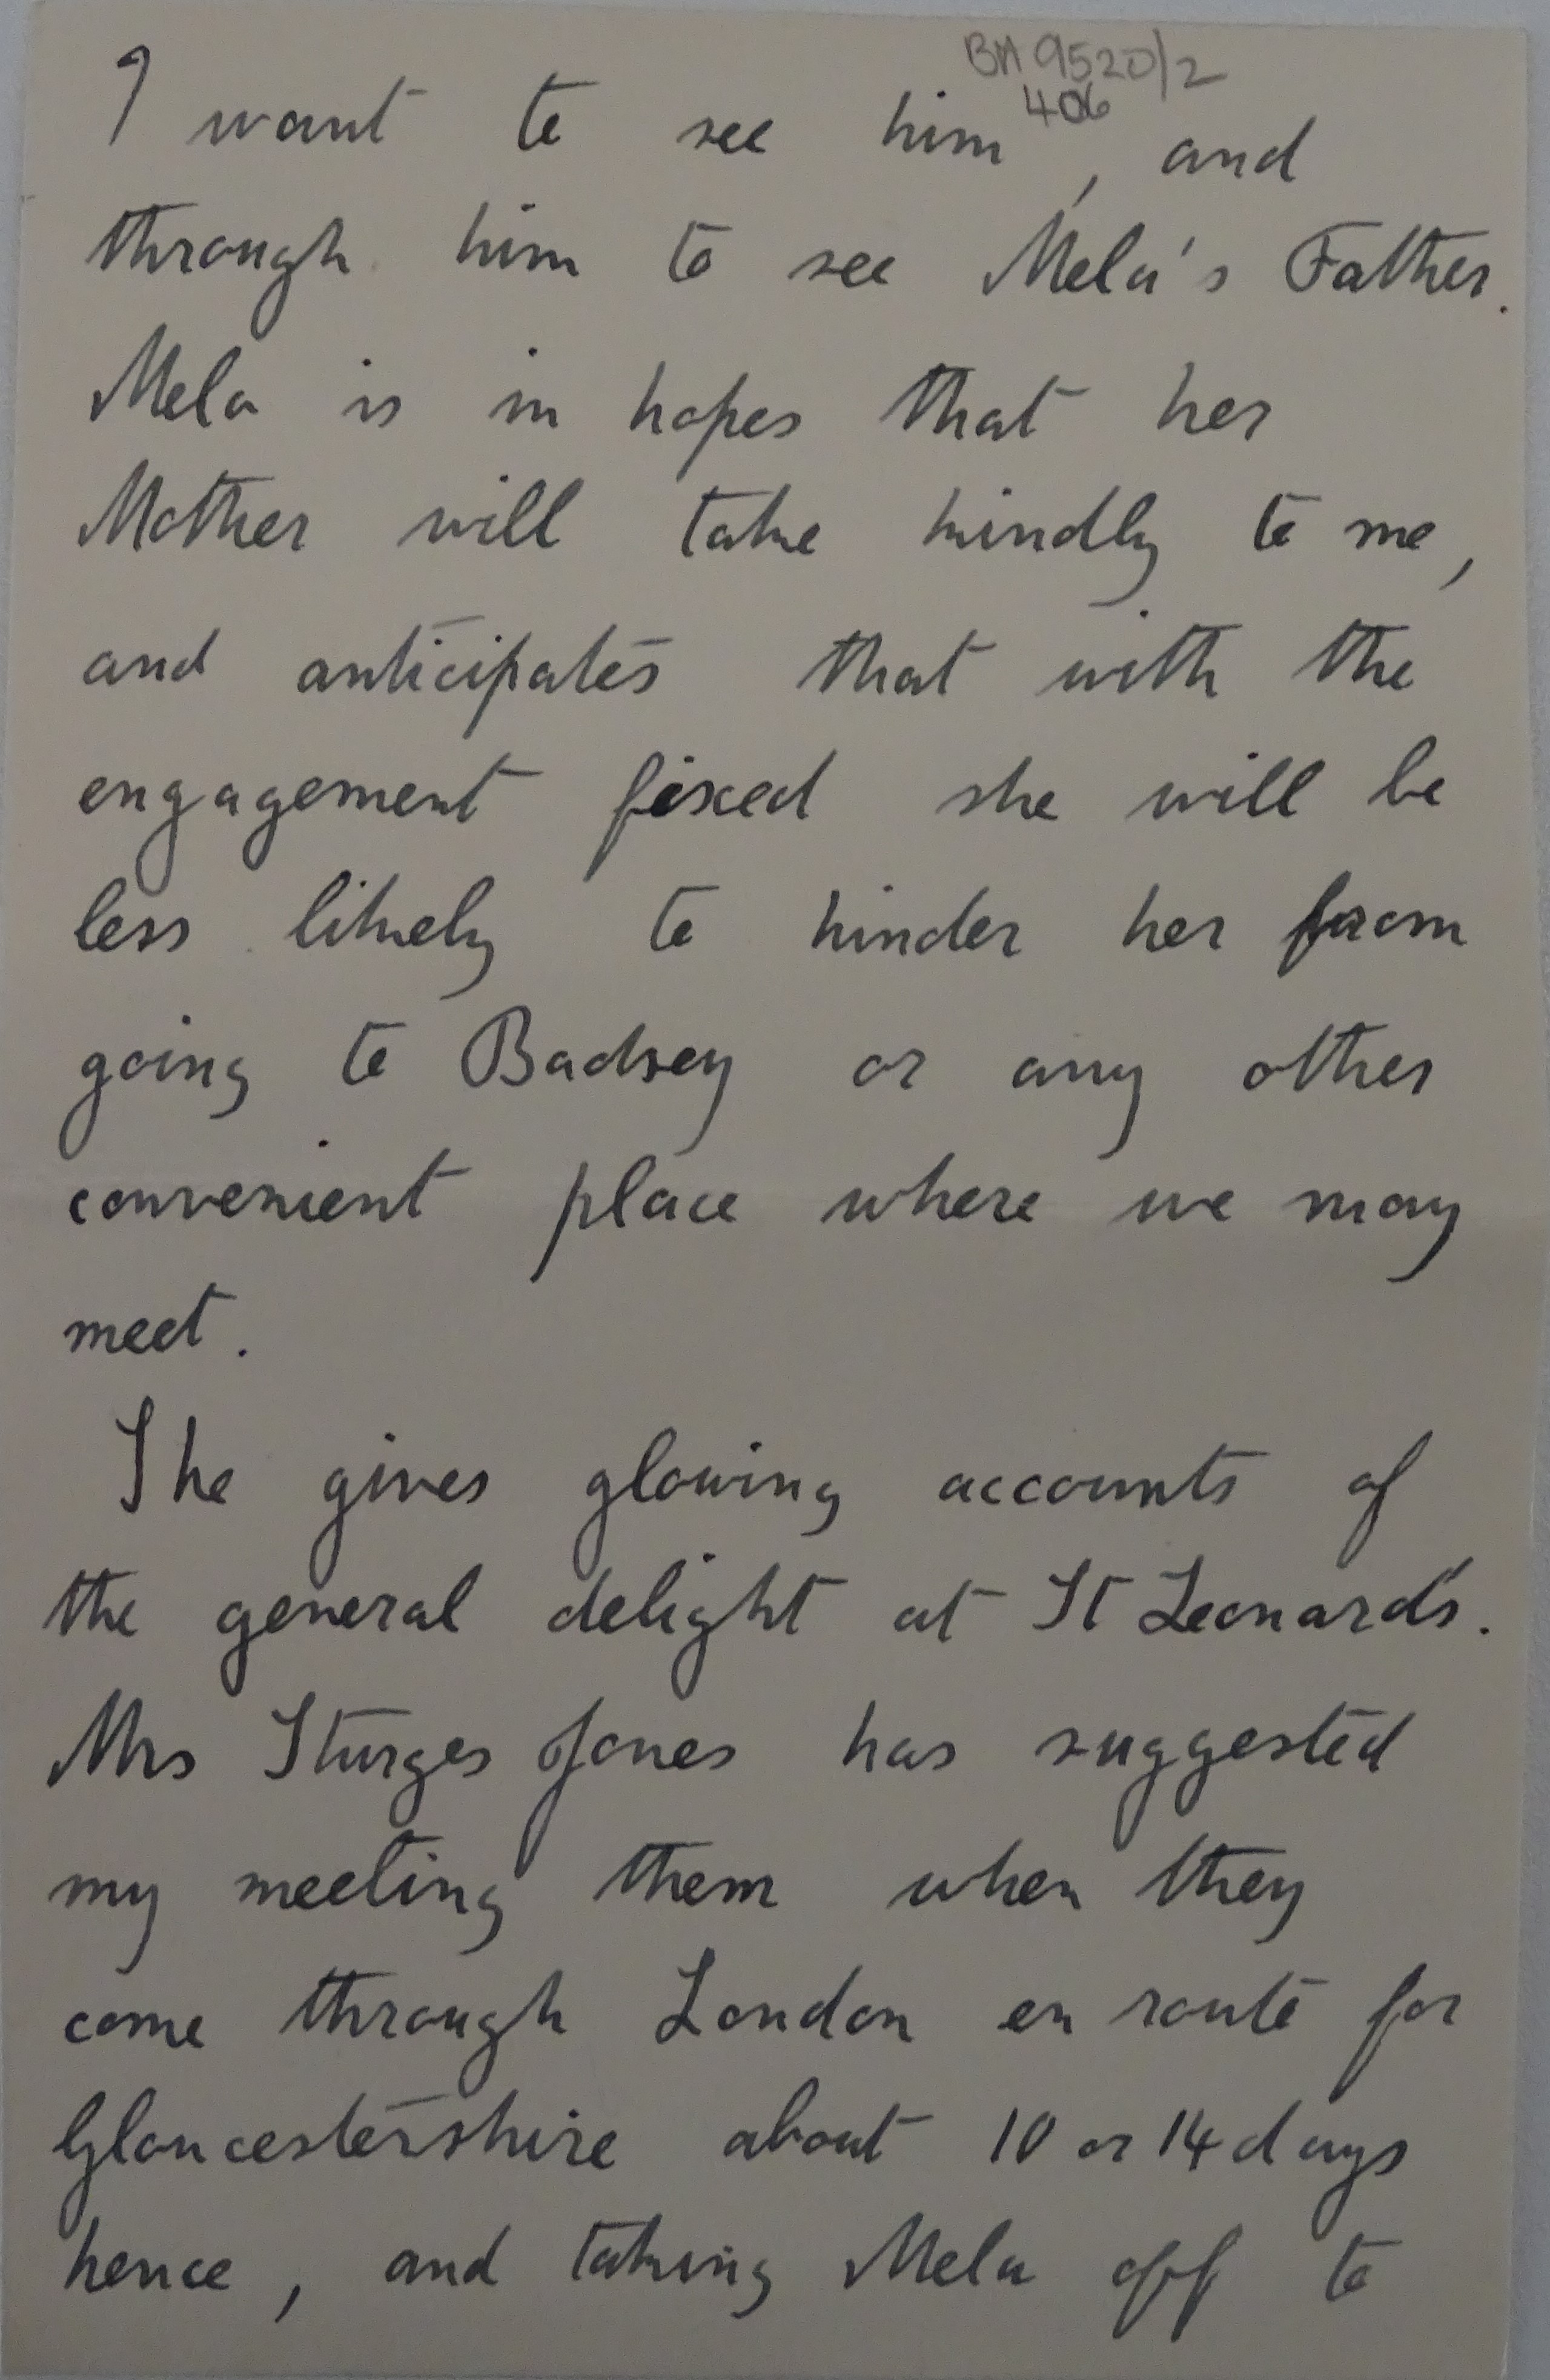 BA 9520/2
406
I want to see him, and
through him to see Mela's Father.
Mela is in hopes that her
Mother will take kindly to me,
and anticipates that with the
engagement fixed she will be
less likely to hinder her from
going to Badsey or any other
convenient place where we may
meet.
She gives glowing accounts of
the general delight at St Leonard's.
Mrs Sturges Jones has suggested
my meeting them when they
come through London en route for
Gloucestershire about 10 or 14 days
hence, and taking Mela off to